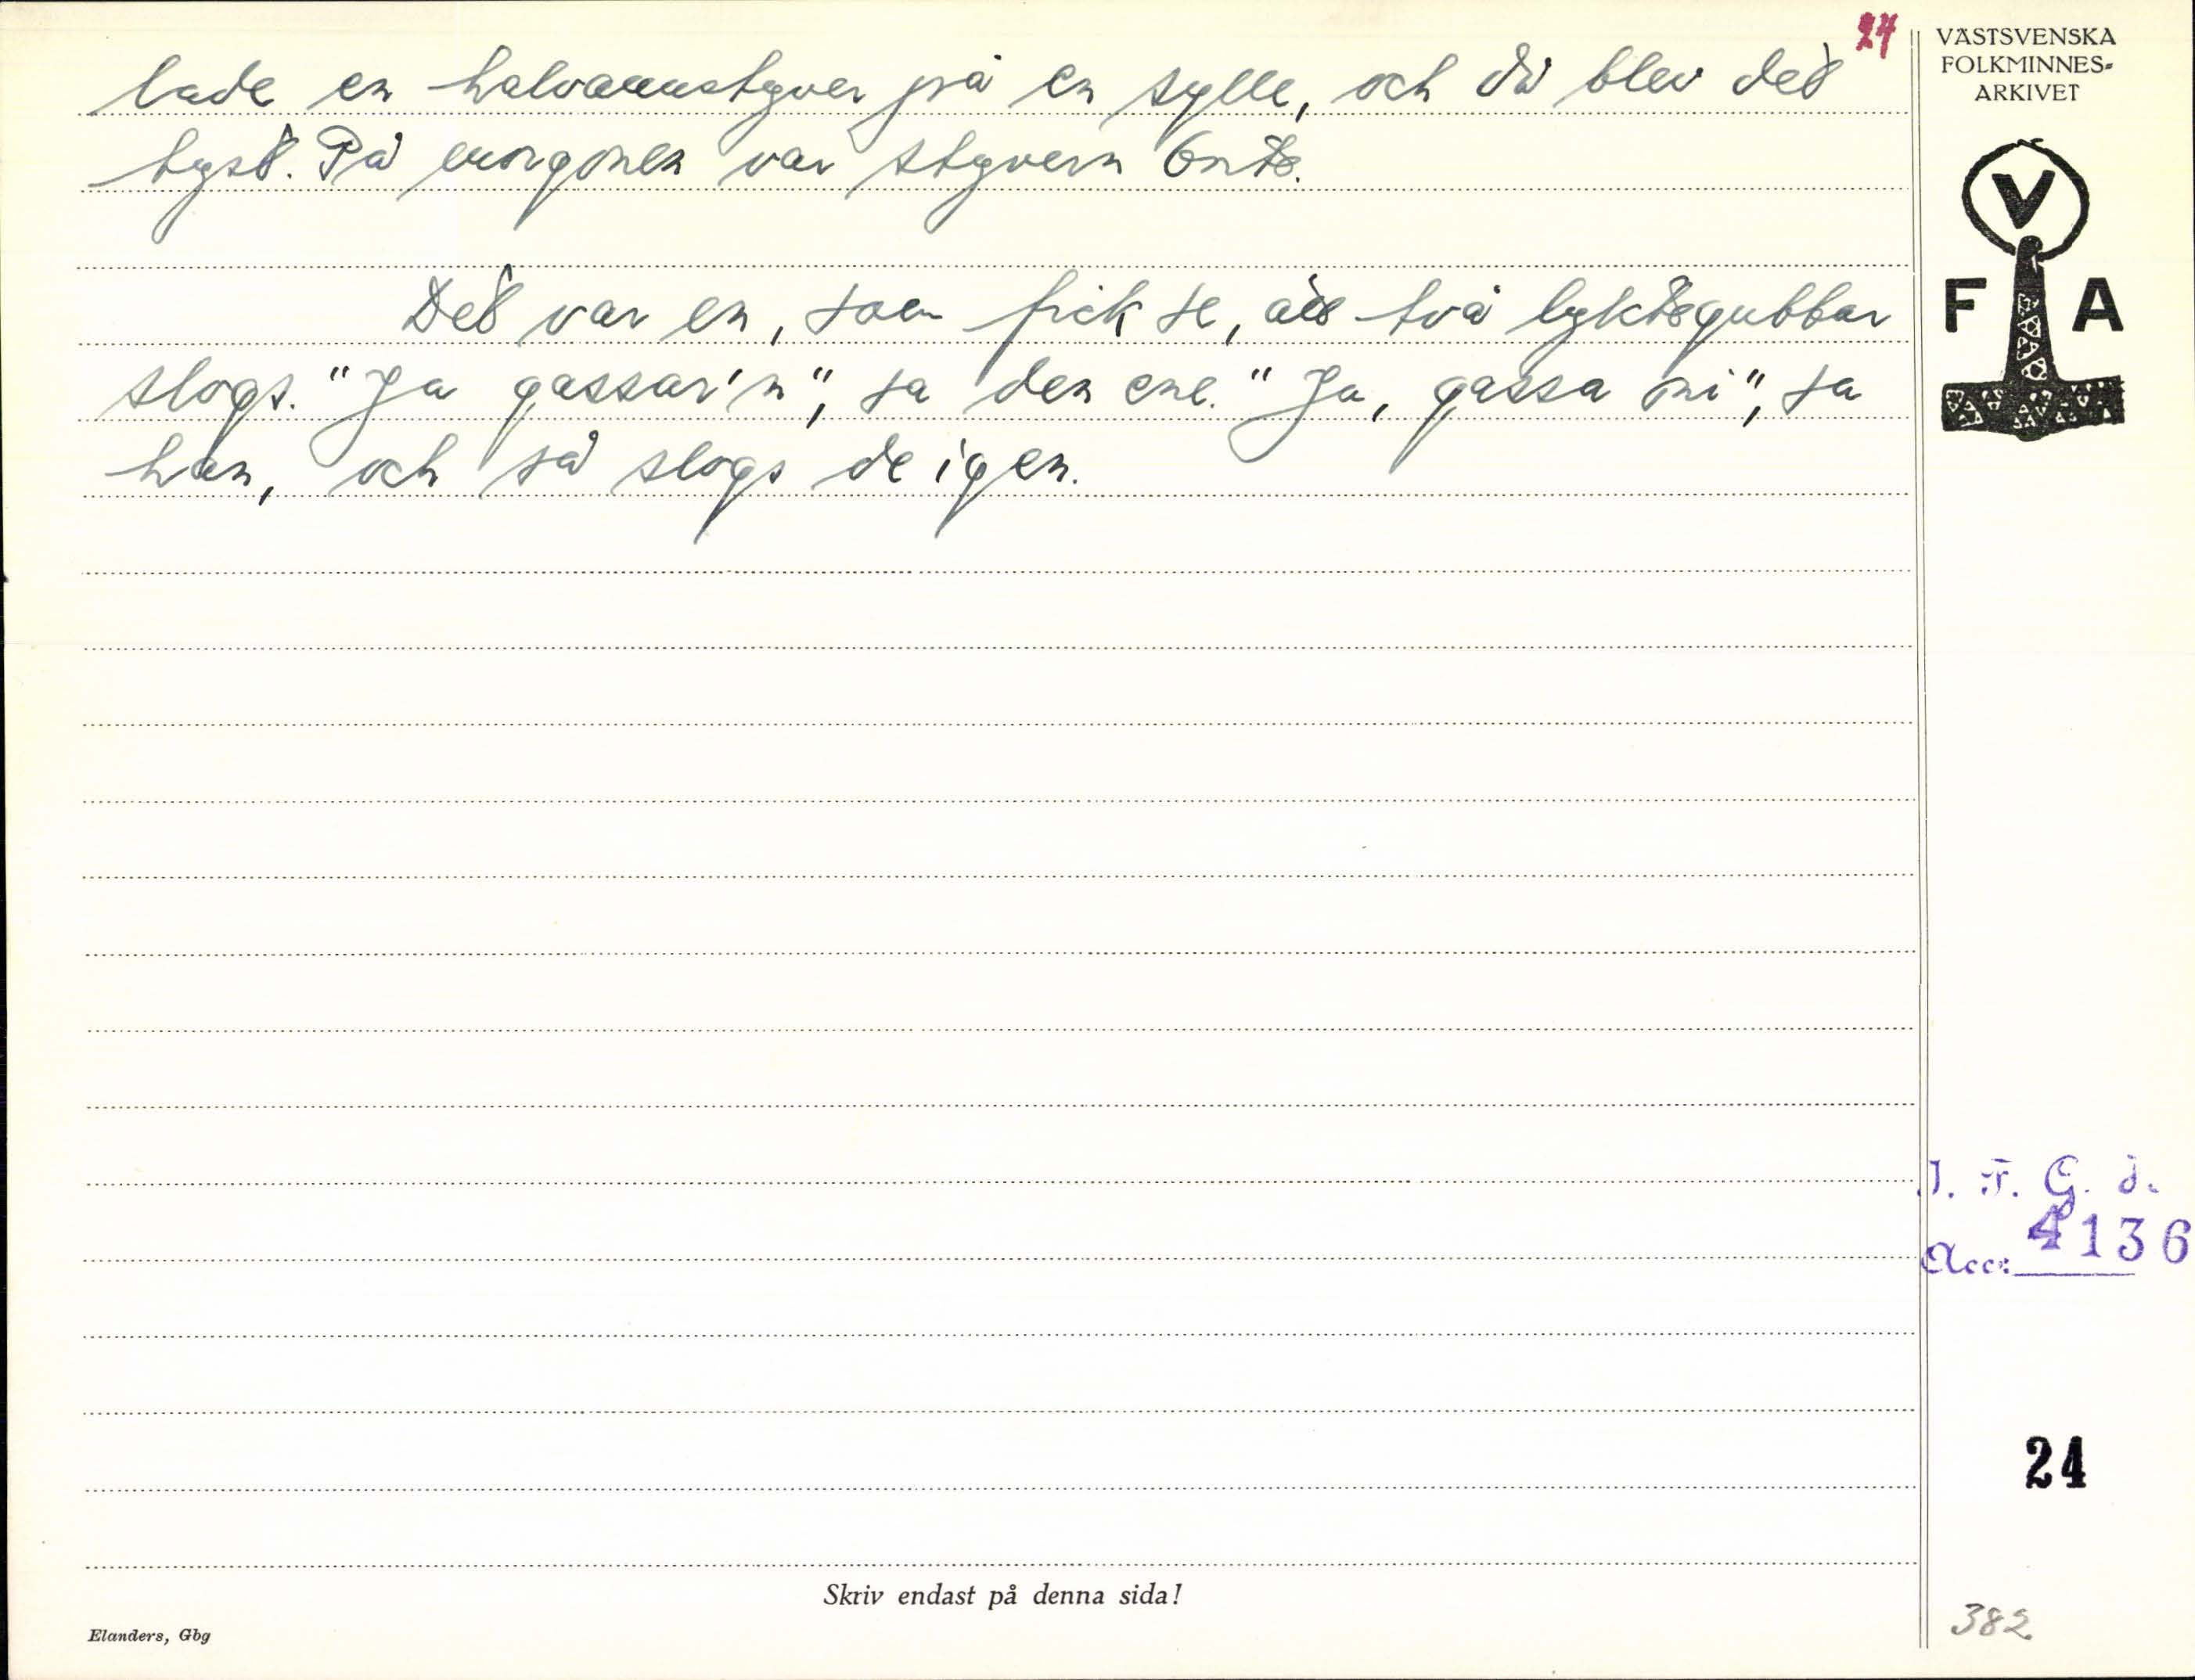 24
lade en halvannstyver på en sylle, och då blev det
tyst. På morgonen var styvern borta.
Det var en, som fick se, att två lyktegubbar
slogs. "Ja gassar'n", sa den ene. "Ja, gassa mi", sa
han, och så slogs de igen.
VÄSTSVENSKA
FOLKMINNES-
ARKIVET
V
F A
I. F. G. s.
Acc: 4136
24
382
Skriv endast på denna sida!
Elanders, Gbg